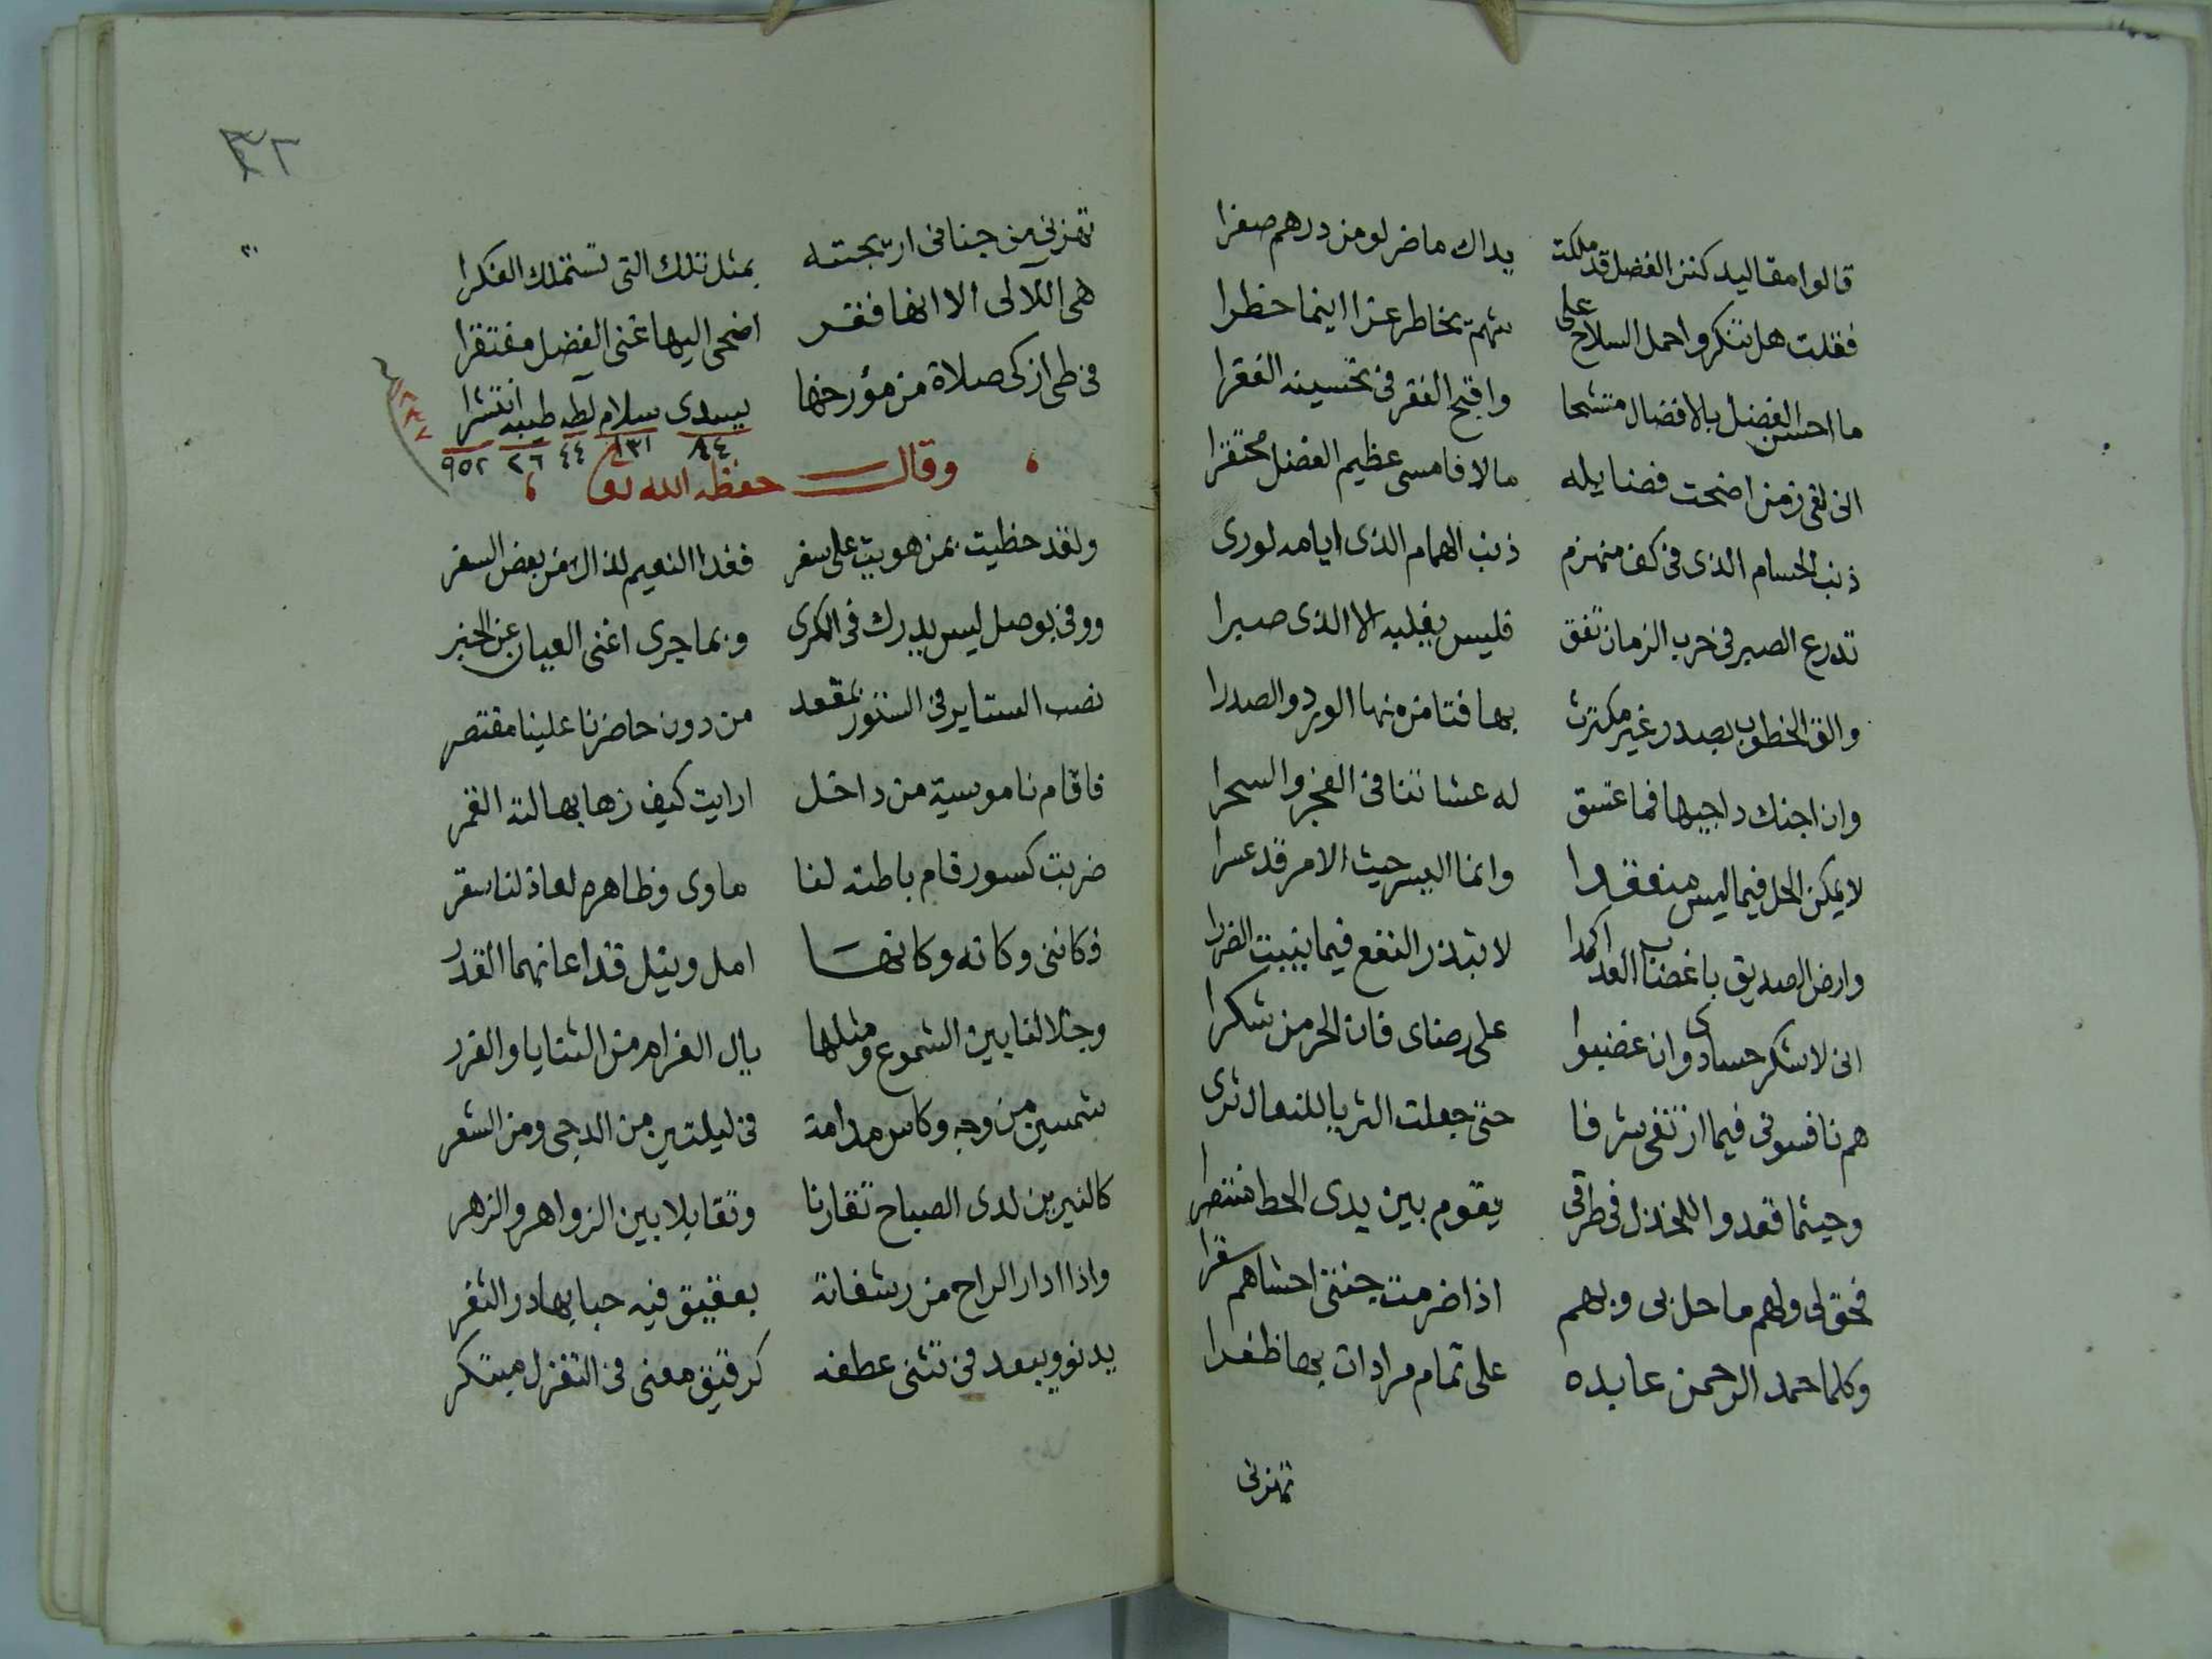 قالوا مقاليد كنز الفضل قد ملكت يداك ما ضر لو من درهم صفرا
فقلت هل تنكروا حمل السلاح على شهم يخاطر عزا اينما خطرا
ما احسن الفضل بالافضال متشحا واقبح الفقر في تحسينه الفقرا
انى لفى زمن اضحت فضايله مالا فامسى عظيم الفضل محتقرا
ذنب الحسام الذى فى كف منهزم ذنب الهمام الذى ايامه لورى
تدرع الصبر فى حرب الزمان تفق فليس يغلبه الا الذى صبرا
والق الخطوب بصدر غير مكترث بها فتامن منها الورد والصدرا
وان اجنك داجيها فما غسق له عشا تنافى الفجر والسحرا
لا يمكن الحل فيما ليس منعقدا وانما اليسر حيث الامر قد عسرا
وارض الصديق باغضاب العدا كمدا لا تبذر النفع فيما ينبت الضررا
انى لاشكر حسادى وان غضبوا على رضاى فان الحر من شكرا
هم نافسونى فيما ارتقى شرفا حتى جعلت الثريا للنعال ثرى
وحيثما قعدوا للخذل فى طرقى يقوم بين يدى الحظ منتصرا
فحق لى ولهم ما حل بى وبهم اذا ضرمت جنتى احشاهم سقرا
وكلما حمد الرحمن عابده على تمام مرادات بها ظفرا
تهزنى
٣٦
تهزنى من جنانى اريجته بمثل تلك التى تستملك الفكرا
هى اللآلى الا انها فقر اضحى اليها غنى الفضل مفتقرا
فى طى ازكى صلاة من مؤرخها يبدى سلام لطه طيبه انتشرا
٤٤ ٢٦ ٩٥٢
وقال حفظه الله تع
ولقد حظيت بمن هويت على سفر فغدا النعيم لذاك من بعض السفر
ووفى بوصل ليس يدرك فى الكرى وبما جرى اغنى العيان عن الخبر
نصب الستاير فى الستور بمقعد من دون حاضرنا علينا مقتصر
فاقام ناموسية من داخل ارايت كيف زها بهالته القمر
ضربت كسور قام باطنه لنا ماوى وظاهره لعاذلنا سقر
فكاننى وكانه وكانها امل ونيل قد اعانهما القدر
وجلا لنا بين الشموع ومثلها بال الغرام من الثنايا والغرر
شمسين من وجه وكاس مدامة فى ليلتين من الدجى ومن الشعر
كالنيرين لدى الصباح تقارنا وتقابلا بين الزواهر والزهر
واذا ادار الراح من رشفاته بعقيق فيه حبابها در الثغر
يدنو ويبعد فى تثنى عطفه كرقيق معنى فى التغزل مبتكر